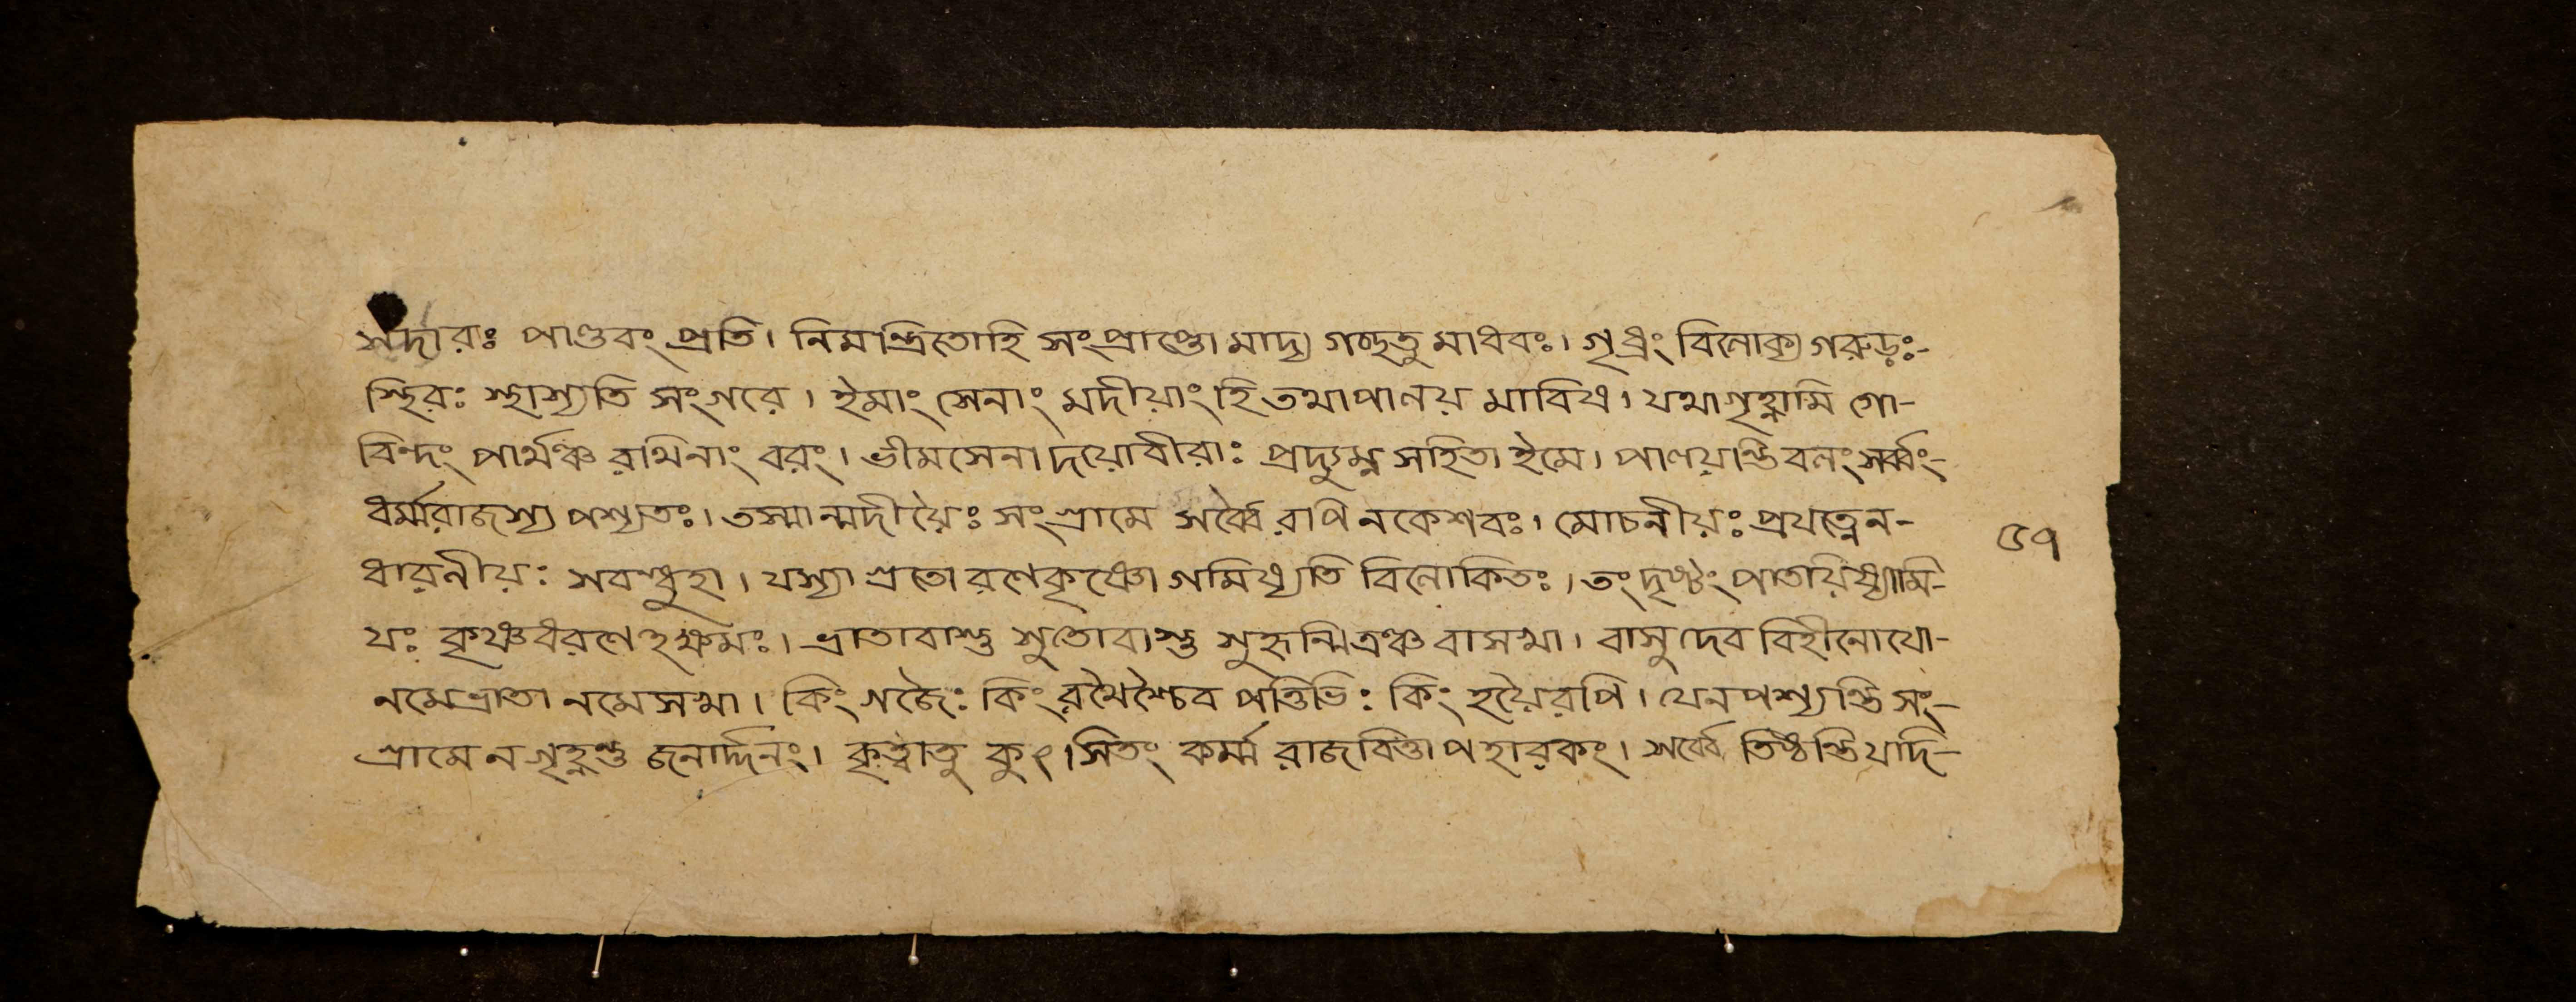 সদারঃ পাণ্ডবং প্রতি। নিমন্ত্রিতোহি সংপ্রাপ্তো মাদ্য গচ্ছতু মাধবঃ। গৃধ্রং বিলোক্য গরুড়ঃ-
স্থিরঃ স্থাস্যতি সংগরে। ইমাং সেনাং মদীয়াং হি তথাপালয় মাবিষ। যথাগৃহ্ণামি গো-
বিন্দং পার্থঞ্চ রথিনাং বরং। ভীমসেনাদয়োবীরাঃ প্রদ্যুম্ন সহিতা ইমে। পালয়ন্তিবলং সর্ব্বং-
ধর্ম্মরাজস্য পশ্যতঃ। তস্মান্মদীয়ৈঃ সংগ্রামে সর্ব্বৈ রপি নকেশবঃ। মোচনীয়ঃ প্রযত্নেন-
ধারনীয়ঃ সবন্ধুহা। যস্যা গ্রতো রণেকৃষ্ণো গমিষ্যতি বিলোকিতঃ। তং দৃষ্টং পাতয়িষ্যামি-
যঃ কৃষ্ণধরণেহক্ষমঃ। ভ্রাতাবাস্তু সুতোবাস্তু সুহৃন্মিত্রঞ্চ বাসখা। বাসুদেব বিহীনোযো-
নমেভ্রাতা নমেসখা। কিং গজৈঃ কিং রথৈশ্চৈব পত্তিভিঃ কিং হয়ৈরপি। যেনপশ্যন্তি সং-
গ্রামে ন গৃহ্ণন্তু জনার্দ্দনং। কৃত্বাতু কুৎসিতং কর্ম্ম রাজবিত্তাপহারকং। সর্ব্বে তিষ্ঠন্তিযদি-
৫৭